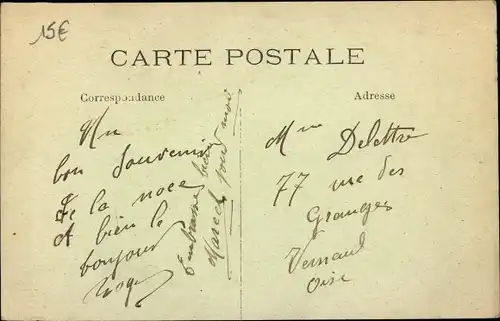 15€
CARTE POSTALE
Correspondance
Adresse
Un
bon souvenir
de la noce
et bien le
bonjour
Embrasse bien
Marcel pour moi
Mme Delettre
77 rue des
Granges
Verneuil
Oise